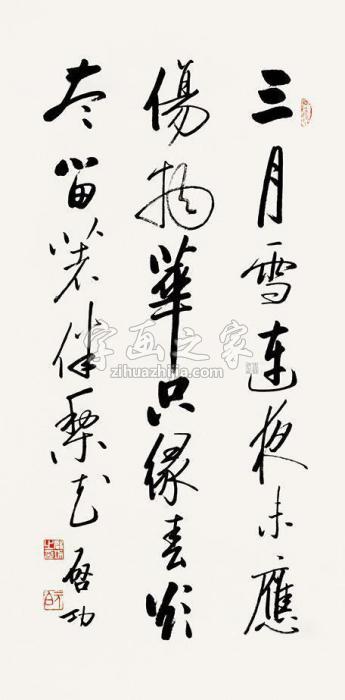 三月雪連夜未應
傷物華只緣春欲
尽留著伴梨花
啓功
字画之家
zihuazhijia.com